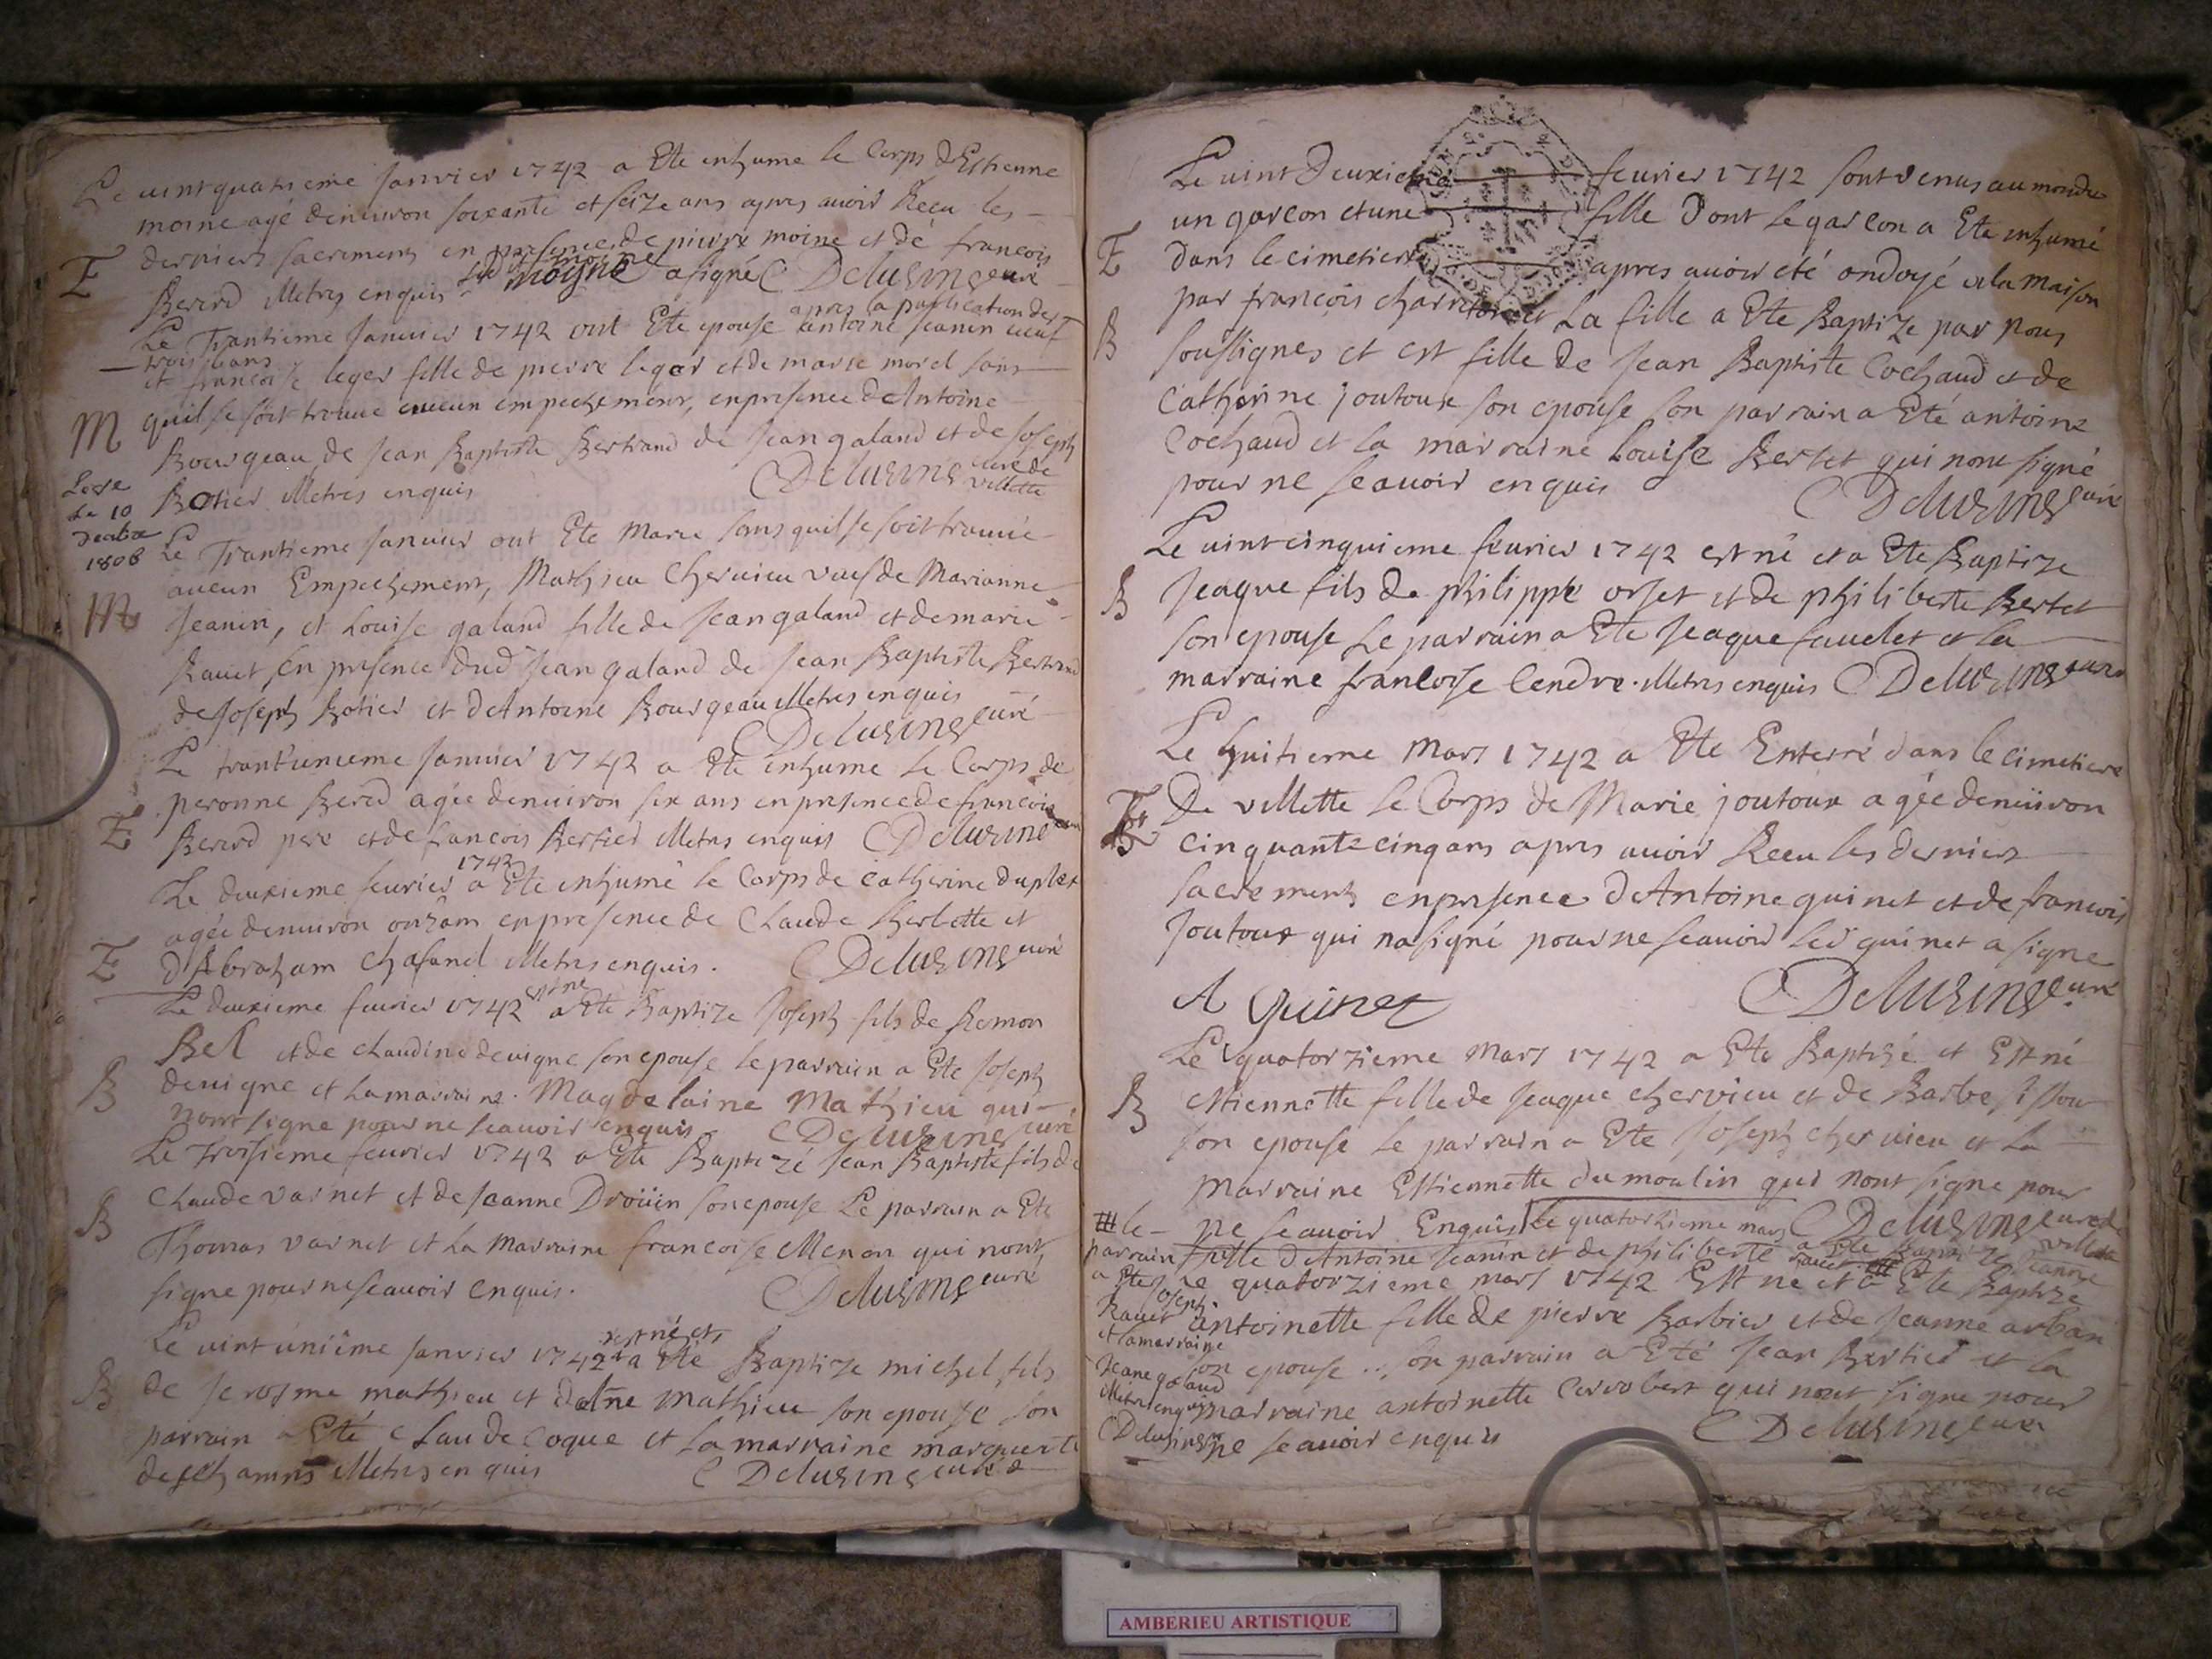 Le vint quatrieme Janvier 1742 a Ete inhume le Corps d'Estienne
moine agé denuiron soixante et seize ans apres auoir Recu les
E
derniers sacrements en presence de pierre moine et de francois
Berrd illetres enquis moyne a signé Delusins curé
apres la publication des
Le Trantieme Januier 1742 ont Ete epouse antoine Jeanin veuf
trois bans
et francoise leger fille de pierre leger et de marie morel sans
M
quil se soit trouue aucun empechement, en presence de Antoine
Bourgeau de Jean Baptiste Bertrand de Jean galand et de Joseph
Leve
Le 10
1806
Botier illetres enquis Delusins curé de villette
Le Trantieme Januier ont Ete Marie sans quil se soit trouué
aucun Empechement, Mathieu Chervieu veuf de Marianne
M
Jeanin, et Louise galand fille de Jean galand et de marie
Rauet En presence dud Jean galand de Jean Baptiste Bertrand
de Joseph Botier et d'Antoine Bourgeau illetres enquis
Delusins curé
Le trantunieme Januier 1742 a Ete inhume le Corps de
peronne Berrd agée denuiron six ans en presence de francois
E
Berrd pere et de francois Bertier illetres enquis Delusins
1742
Le deuxieme feurier a Ete inhumé le Corps de Catherine duplex
agée denuiron onze ans en presence de Claude Herbette et
E
d'Abraham Chafanel illetres enquis. Delusins curé
est né
Le deuxieme feurier 1742 a Ete Baptize Joseph fils de Remon
Bel et de claudine deuigne son epouse le parrain a Ete Joseph
B
deuigne et la marraine Magdelaine Mathieu qui
nont signe pour ne scauoir enquis Delusins curé
Le troisieme feurier 1742 a Ete Baptizé Jean Baptiste fils de
B
Claude varnet et de Jeanne Droüin son epouse Le parrain a Ete
Thomas varnet et la Marraine francoise Menon qui nont
signe pour ne scauoir enquis. Delusins curé
est né et
Le vint uniême Janvier 1742 a Ete Baptize michel fils
B
de Jerosme mathieu et mathieu son epouse son
parrain a Eté Claude Coque et la marraine marguerite
deschamps illetres enquis Delusins curé
Le vint Deuxieme feurier 1742 sont venus au monde
un garcon et une fille Dont le garcon a Ete inhumé
E
Dans le cimetiere apres auoir eté ondoyé a la maison
par francois et La fille a Ete Baptize par nous
B
soussignes et est fille de Jean Baptiste Cochaud et de
Catherine joutoux son epouse son parrain a Eté antoine
Cochaud et la marraine Louise Bertet qui nont signé
pour ne scauoir enquis Delusins curé
Le vint cinquieme feurier 1742 est né et a Ete Baptize
B
Jeaque fils de philippe orset et de philiberte Bertet
son epouse Le parrain a Ete Jeaque fauelet et la
marraine francoise Cendre. illetres enquis Delusins curé
Le huitieme Mars 1742 a Ete Enterré dans le cimetiere
E
De villette le Corps de Marie joutoux agée denüiron
cinquante cinq ans apres auoir Recu les derniers
sacrements en presence d'Antoine quinet et de francois
Joutoux qui na signé pour ne scauoir led quinet a signe
A Quinet Delusins curé
Le quatorzieme Mars 1742 a Ete Baptizé et Est né
B
estiennette fille de Jeaque chervieu et de Barbe
son epouse Le parrain a Ete Joseph cheruieu et la
Marraine Estiennette dumoulin qui nont signe pour
ne scauoir Enquis Le quatorzieme mars Delusins curé de villette
a Ete Baptize Jeanne
fille d'Antoine Jeanin et de philiberte Rauet
le
parrain
a Ete
Joseph
Rauet
et la marraine
Jeane galand
illetres enquis
Delusins
Le quatorzieme mars 1742 Est né et a Ete Baptize
antoinette fille de pierre Barbier et de Jeanne arban
son epouse .. son parrain a Eté Jean Bertier et la
marraine antoinette Carrobert qui nont signe pour
ne scauoir enquis Delusins curé
AMBERIEU ARTISTIQUE